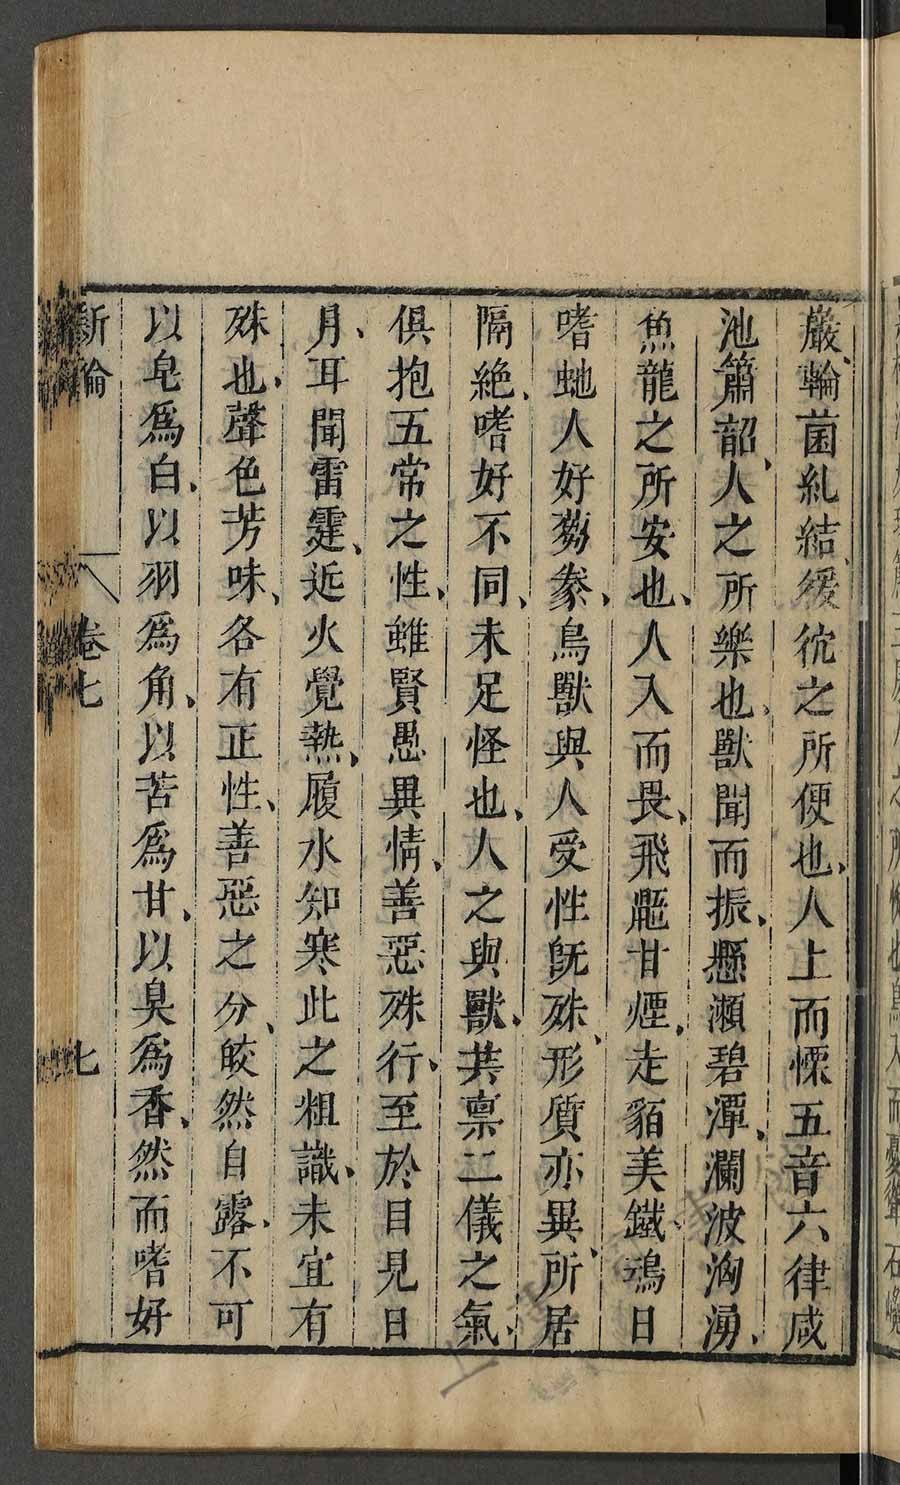 巖、輪菌糺結、猨狖之所便也、人上而慄五音六律咸
池簫韶、人之所樂也、獸聞而振、懸瀨碧潭、瀾波洶湧、
魚龍之所安也、人入而畏、飛鼯甘煙、走貊美鐵、鴆日
嗜虵人好芻豢、鳥獸與人受性旣殊、形質亦異、所居
隔絶、嗜好不同、未足怪也、人之與獸、共禀二儀之氣、
俱抱五常之性、雖賢愚異情、善惡殊行、至於目見日
月、耳聞雷霆、近火覺熱、履水知寒此之粗識、未宜有
殊也、聲色芳味、各有正性、善惡之分、皎然自露、不可
以皂爲白、以羽爲角、以苦爲甘、以臭爲香、然而嗜好
新論 卷七 七